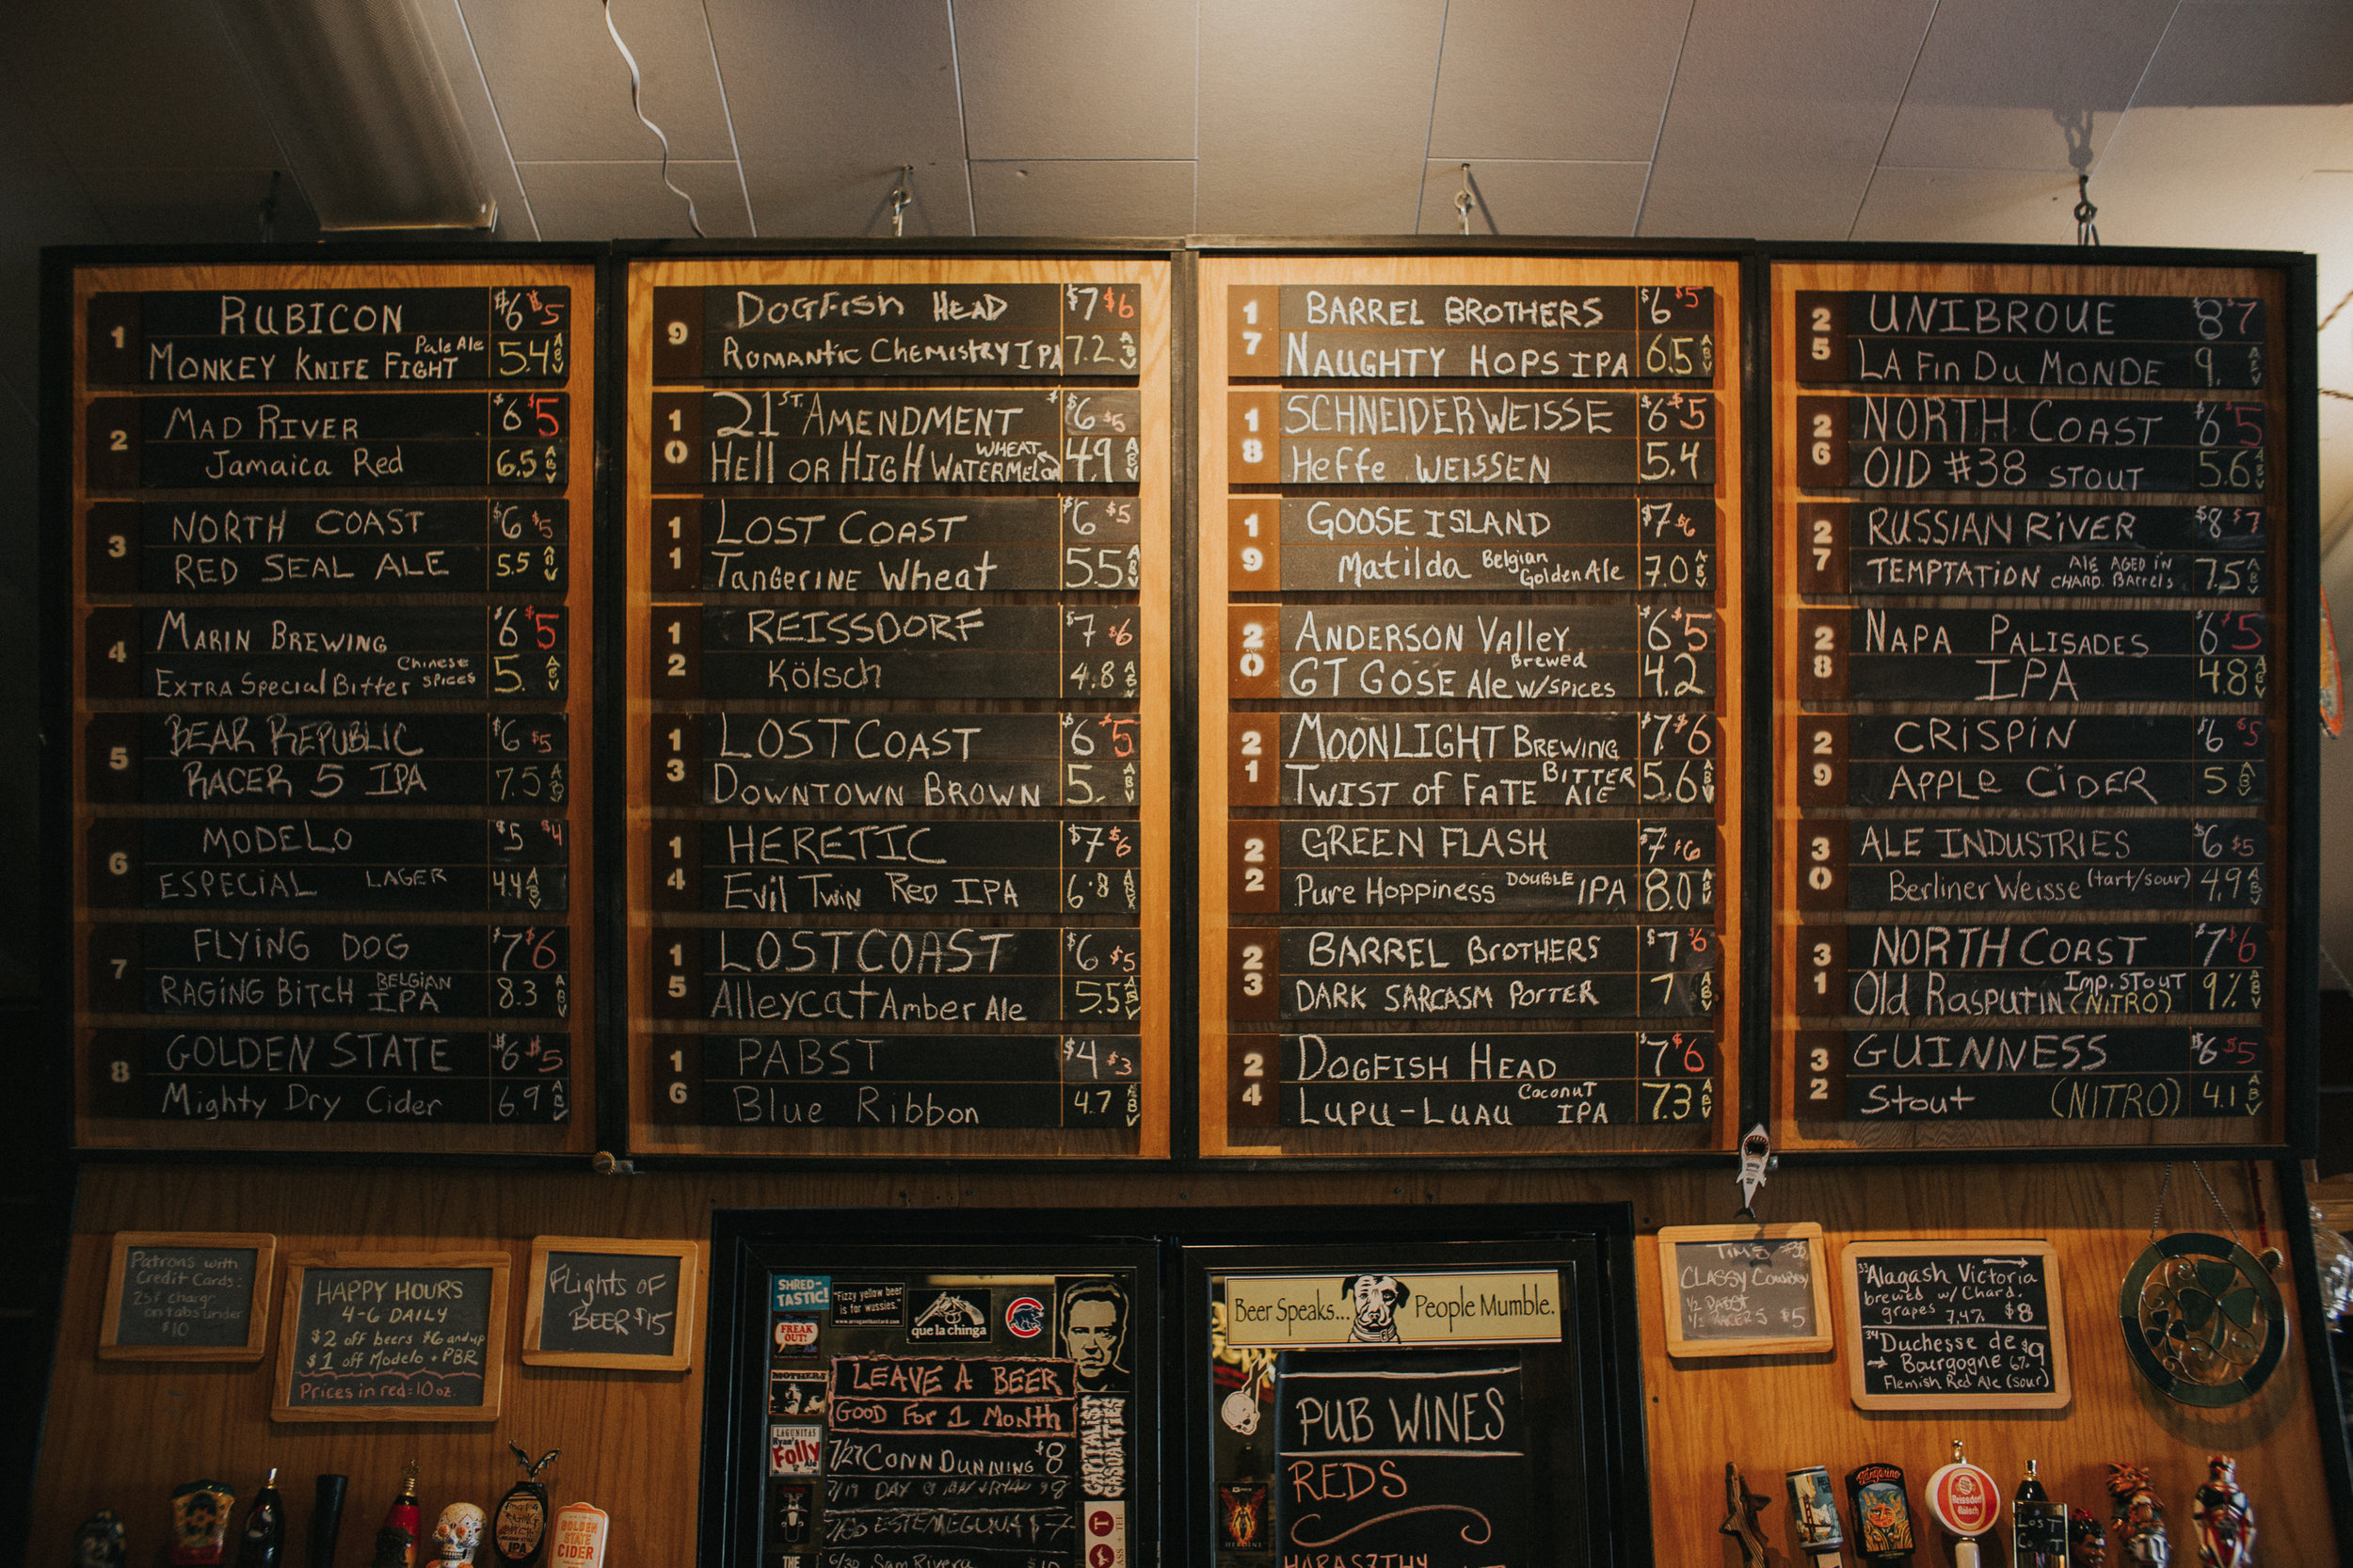 1
RUBICON $6 $5
MONKEY KNIFE FIGHT Pale Ale 5.4 ABV
2
MAD RIVER $6 $5
Jamaica Red 6.5 ABV
3
NORTH COAST $6 $5
RED SEAL ALE 5.5 ABV
4
MARIN BREWING $6 $5
EXTRA Special Bitter Chinese SPICES 5. ABV
5
BEAR REPUBLIC $6 $5
RACER 5 IPA 7.5 ABV
6
MODELO $5 $4
ESPECIAL LAGER 4.4 ABV
7
FLYING DOG $7 $6
RAGING BITCH BELGIAN IPA 8.3 ABV
8
GOLDEN STATE $6 $5
Mighty Dry Cider 6.9 ABV
9
DOGFISH HEAD $7 $6
ROMANTIC CHEMISTRY IPA 7.2 ABV
10
21ST. AMENDMENT $6 $5
HELL OR HIGH WATERMELON WHEAT 4.9 ABV
11
LOST COAST $6 $5
TANGERINE Wheat 5.5 ABV
12
REISSDORF $7 $6
Kölsch 4.8 ABV
13
LOST COAST $6 $5
DOWNTOWN BROWN 5. ABV
14
HERETIC $7 $6
Evil Twin Red IPA 6.8 ABV
15
LOST COAST $6 $5
Alleycat Amber Ale 5.5 ABV
16
PABST $4 $3
Blue Ribbon 4.7 ABV
17
BARREL BROTHERS $6 $5
NAUGHTY HOPS IPA 6.5 ABV
18
SCHNEIDER WEISSE $6 $5
HEFFE WEISSEN 5.4
19
GOOSE ISLAND $7 $6
Matilda Belgian Golden Ale 7.0 ABV
20
ANDERSON Valley $6 $5
GT GOSE Ale Brewed W/SPICES 4.2
21
MOONLIGHT BREWING $7 $6
TWIST of FATE BITTER ALE 5.6 ABV
22
GREEN FLASH $7 $6
Pure Hoppiness DOUBLE IPA 8.0 ABV
23
BARREL BROTHERS $7 $6
DARK SARCASM PORTER 7 ABV
24
DOGFISH HEAD $7 $6
LUPU-LUAU Coconut IPA 7.3 ABV
25
UNIBROUE $8 $7
LA Fin Du MONDE 9. ABV
26
NORTH COAST $6 $5
OlD #38 STOUT 5.6 ABV
27
RUSSIAN RIVER $8 $7
TEMPTATION ALE AGED IN CHARD. Barrels 7.5 ABV
28
NAPA PALISADES $6 $5
IPA 4.8 ABV
29
CRISPIN $6 $5
APPLE CIDER 5 ABV
30
ALE INDUSTRIES $6 $5
Berliner Weisse (tart/sour) 4.9 ABV
31
NORTH COAST $7 $6
Old Rasputin Imp. STOUT (NITRO) 9% ABV
32
GUINNESS $6 $5
Stout (NITRO) 4.1 ABV
Patrons with
Credit Cards:
25¢ charge
on tabs under
$10
HAPPY HOURS
4-6 DAILY
$2 off beers $6 and up
$1 off Modelo + PBR
Prices in red: 10 oz.
FLIGHTS OF
BEER $15
SHRED-
TASTIC!
"Fizzy yellow beer
is for wussies."
www.arrogantbastard.com
que la chinga
FREAK
OUT!
MOTHERS
LAGUNITAS
Ryan's
Folly
CAPITALIST
CASUALTIES
LEAVE A BEER
GOOD FOR 1 MONTH
7/27 CONN DUNNING $8
ESTEMEGUNA $7
6/30 Sam Rivera
THE
Beer Speaks... People Mumble.
PUB WINES
REDS
HARASZTHY
TIM'S
CLASSY COWBOY
1/2 PABST
1/2 RACER 5 $5
33 Alagash Victoria
brewed w/ Chard.
grapes 7.4% $8
34 Duchesse de $9
Bourgogne 6%
Flemish Red Ale (sour)
RAGING BITCH
IPA
GOLDEN
STATE
CIDER
Tangerine
Reissdorf
Kölsch
LOST
COAST